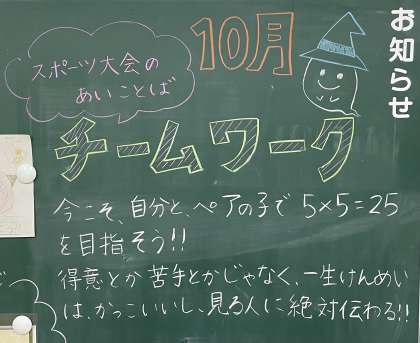 お知らせ
10月
スポーツ大会の
あいことば
チームワーク
今こそ、自分と、ペアの子で 5×5=25
を目指そう!!
得意とか苦手とかじゃなく、一生けんめい
は、かっこいいし、見る人に絶対伝わる!!